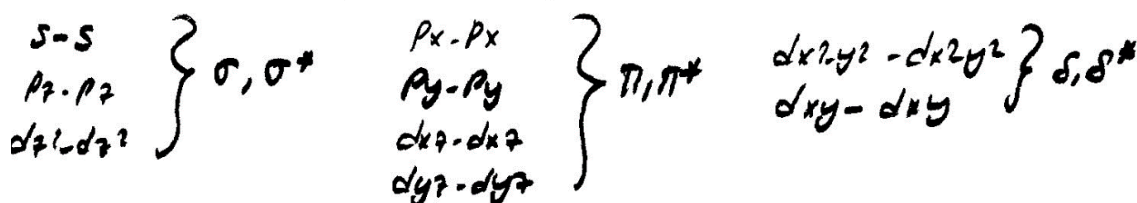 s-s
pz-pz
dz²-dz²
σ, σ*
px-px
py-py
dxz-dxz
dyz-dyz
π, π*
dx²-y² - dx²y²
dxy - dxy
δ, δ*